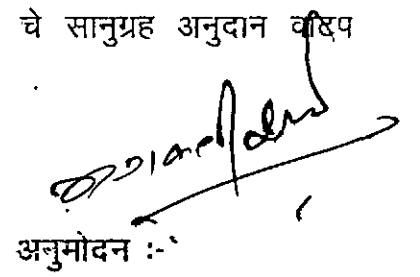 चे सानुग्रह अनुदान वाटप
अनुमोदन :-